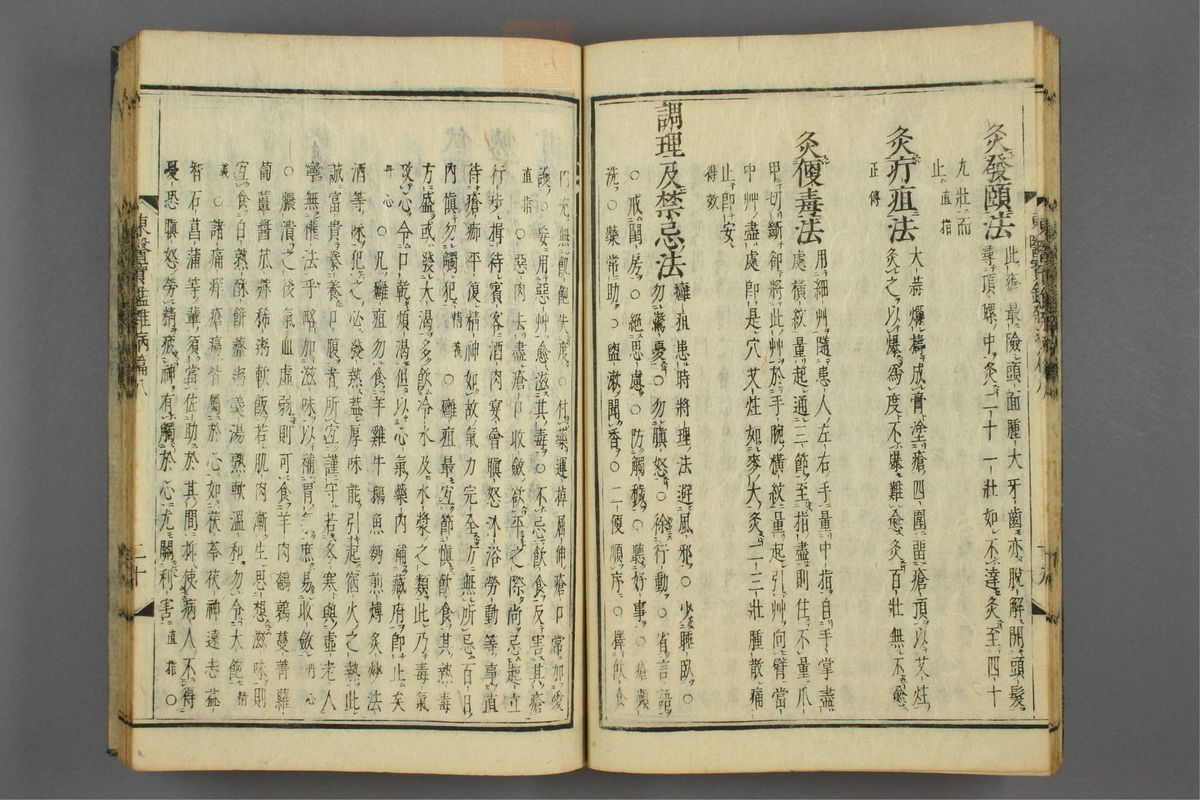 灸發頤法
此瘡最險頭面腫大牙齒亦脫解開頭髮
尋頂螺中灸二十一壯如不達灸至四十
九壯而
止直指
灸疔疽法
大蒜爛擣成膏塗瘡四圍留瘡頂以艾炷
灸之以爆爲度不爆難愈灸百壯無不愈
正傳
灸便毒法
用細艸隨患人左右手量中指自手掌盡
處橫紋量起通三節至指盡則住不量爪
甲切斷却將此艸於手腕橫紋量起引艸向臂當
中艸盡處卽是穴艾炷如麥大灸二三壯腫散痛
止卽安
得效
調理及禁忌法
癰疽患時將理法避風邪○少睡臥○
勿驚憂○勿嗔怒○徐行動○省言語
○戒閨房○絕思慮○防觸穢○聽好事○瘡瀕
洗○藥常助○盬漱聞香○二便順序○擇飮食
無飢飽失度○付藥運掉屈伸瘡口常加愛
護○妄用惡艸愈滋其毒○不忌飮食反害其瘡
直指○惡肉去盡瘡口收斂欲平之際尙忌起立
行步揖待賓客酒肉宴會嗔怒沐浴勞動等事直
待瘡瘢平復精神如故氣力完全方無所忌百日
內愼勿觸犯精義○癰疽最宜節愼飮食其熱毒
方盛或發大渴多飮冷水及水漿之類此乃毒氣
攻心令口乾煩渴但以心氣藥內補藏府卽止矣
丹心○凡癰疽勿食羊雞牛鵝魚麪煎煿炙炒法
酒等味犯之必發熱蓋厚味能引起宿火之熱此
誠富貴豢養口腹者所宜謹守若冬寒與虛老人
寧無權法乎略加滋味以補胃氣庶易收斂丹心
○膿潰之後氣血虛弱則可食羊肉鵪鶉蔓菁蘿
葡薑醬苽虀稀粥軟飯若肌肉漸生思想滋味則
宜食白熟酥餠虀粥羹湯熟軟溫和勿令大飽精
義○諸痛痒瘡瘍皆屬於心如茯苓茯神遠志益
智石菖蒲等輩須當佐助於其間抑使病人不得
憂恐嗔怒勞精疲神有觸於心尤關利害直指○
東醫寶鑑雜病篇八
二十
東醫寶鑑雜病篇八
十九